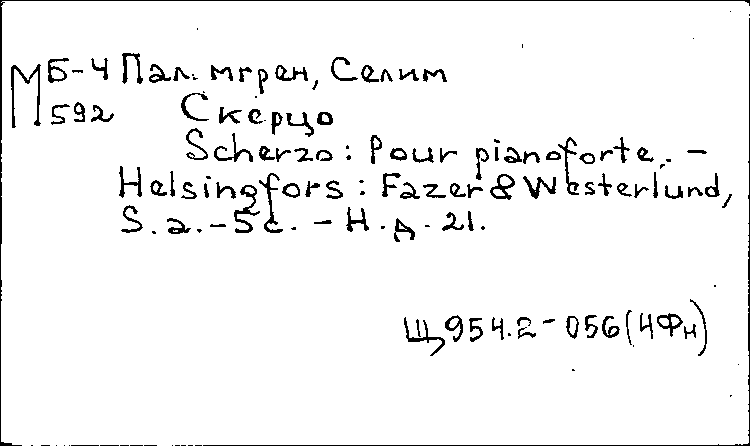 М Б-4 Палмгрен, Селим
592 Скерцо
Scherzo: Pour pianoforte. -
Helsingfors: Fazer & Westerlund,
S. a. - 5 с. - Н. д. 21.
Щ954.2-056(4Фн)